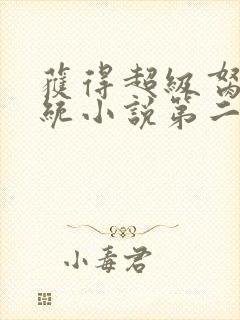 獲得超級
統小說第二
小毒君